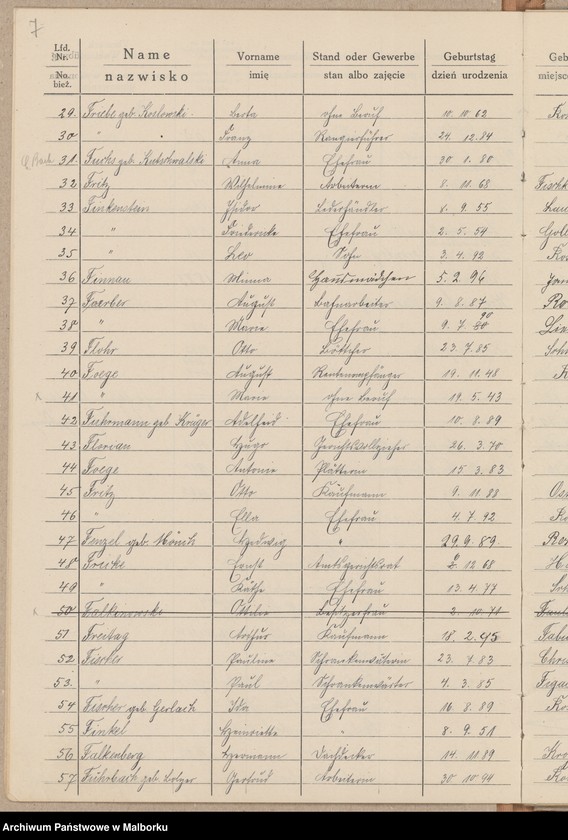 7
Lfd. Nr. Name Vorname Stand oder Gewerbe Geburtstag Geb
No. bież. nazwisko imię stan albo zajęcie dzień urodzenia miejsc
29. Friebe geb. Koslowski Berta ohne Beruf 10. 10. 62
30 " Franz Rangierführer 24. 12. 84
31. Fuchs geb. Anna Ehefrau 30. 1. 80
32 Fritz Wilhelmine Arbeiterin 8. 11. 68
33 Finkenstein Isidor Lederhändler 9. 55
34 " Friederike Ehefrau 2. 5. 54
35 " Leo Sohn 3. 4. 92
36 Finnau Minna Hausmädchen 5. 2. 96
37 Faerber August Bahnarbeiter 9. 8. 87
38 " Marie Ehefrau 9. 7. 90
39 Flohr Otto Böttcher 23. 7. 85
40 Foege August Rentenempfänger 19. 11. 48
41 " Marie ohne Beruf 19. 5. 43
42 Fuhrmann geb. Krüger Adelheid Ehefrau 10. 8. 89
43 Florian Hugo Gerichtsvollzieher 26. 3. 70
44 Foege Antonie Plätterin 15. 3. 83
45 Fritz Otto Kaufmann 9. 11. 88
46 " Ella Ehefrau 4. 7. 92
47 Fenzel geb. Mönch Hedwig " 29. 9. 89
48 Ernst Amtsgerichtsrat 12. 68
49 " Käthe Ehefrau 13. 4. 77
50 Falkowski Ottilie Besitzerfrau 2. 10. 71
51 Freitag Arthur Kaufmann 18. 2. 95
52 Fischer Pauline Schrankenwärterin 23. 7. 83
53. " Paul Schrankenwärter 4. 3. 85
54 Fischer geb. Gerlach Ida Ehefrau 16. 8. 89
55 Finkel Henriette " 8. 9. 51
56 Falkenberg Hermann Dachdecker 14. 11. 89
57 geb. Gertrud Arbeiterin 30. 10. 99
Archiwum Państwowe w Malborku